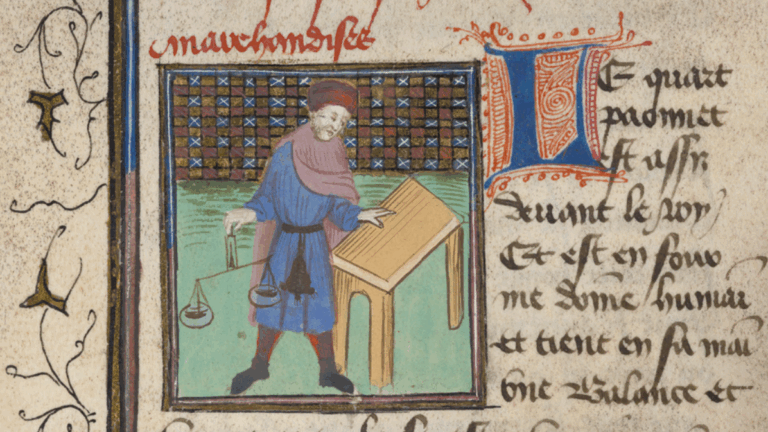 marchandises
Le quart
paonnet
est assis
devant le roy
Et est en four
me dōme humaī
et tient en sa maī
vne Balance et